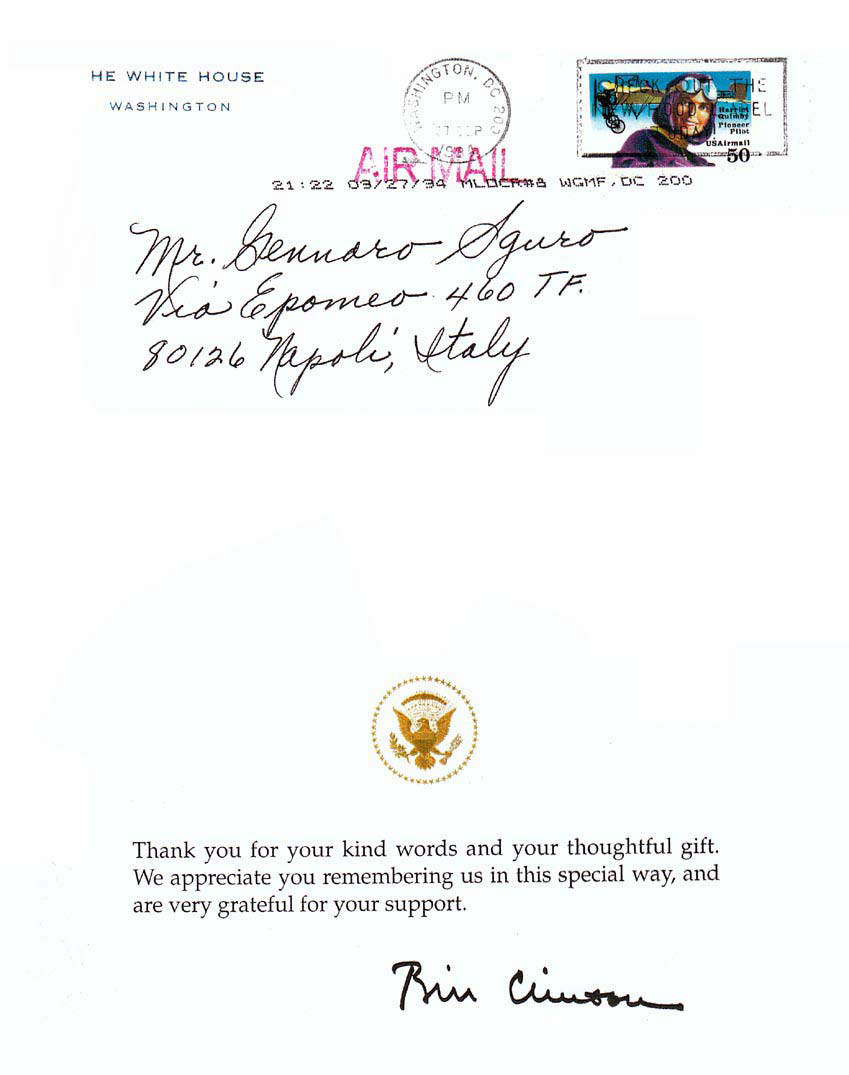 HE WHITE HOUSE
WASHINGTON
WASHINGTON, DC 200
PM
1994
CHECK OUT THE
NEW FOOD LABEL
Harriet
Quimby
Pioneer
Pilot
USAirmail
50
AIR MAIL
21:22 09/27/94 MLOCR#8 WGMF, DC 200
Mr. Gennaro Sguro
Via Epomeo 460 TF.
80126 Napoli, Italy
Thank you for your kind words and your thoughtful gift.
We appreciate you remembering us in this special way, and
are very grateful for your support.
Bill Clinton